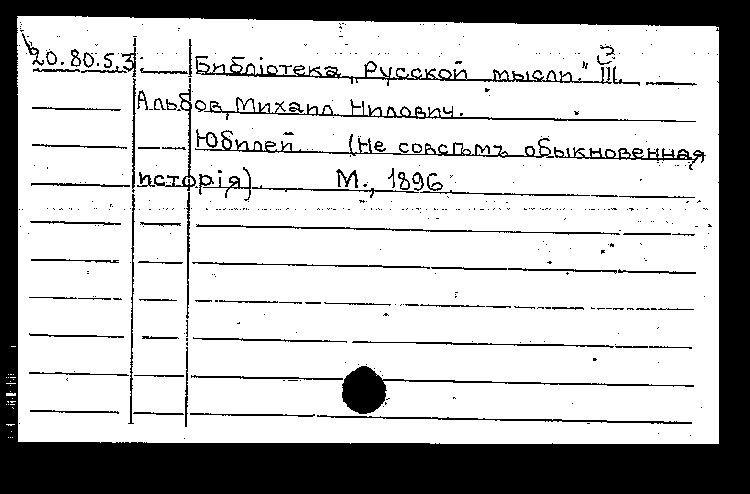 3
20.80.5.3. Библіотека „Русской мысли." III.
Альбов, Михаил Нилович.
Юбилей. (Не совсѣмъ обыкновенная
исторія). М., 1896.